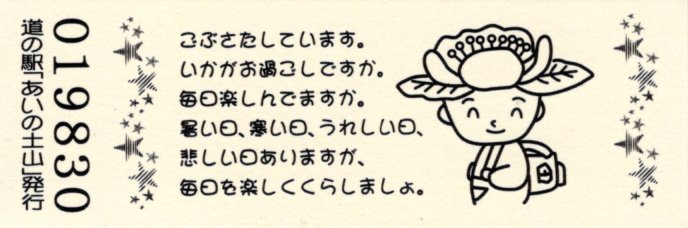 道の駅「あいの土山」発行
019830
ごぶさたしています。
いかがお過ごしですか。
毎日楽しんでますか。
暑い日、寒い日、うれしい日、
悲しい日ありますが、
毎日を楽しくくらしましょ。